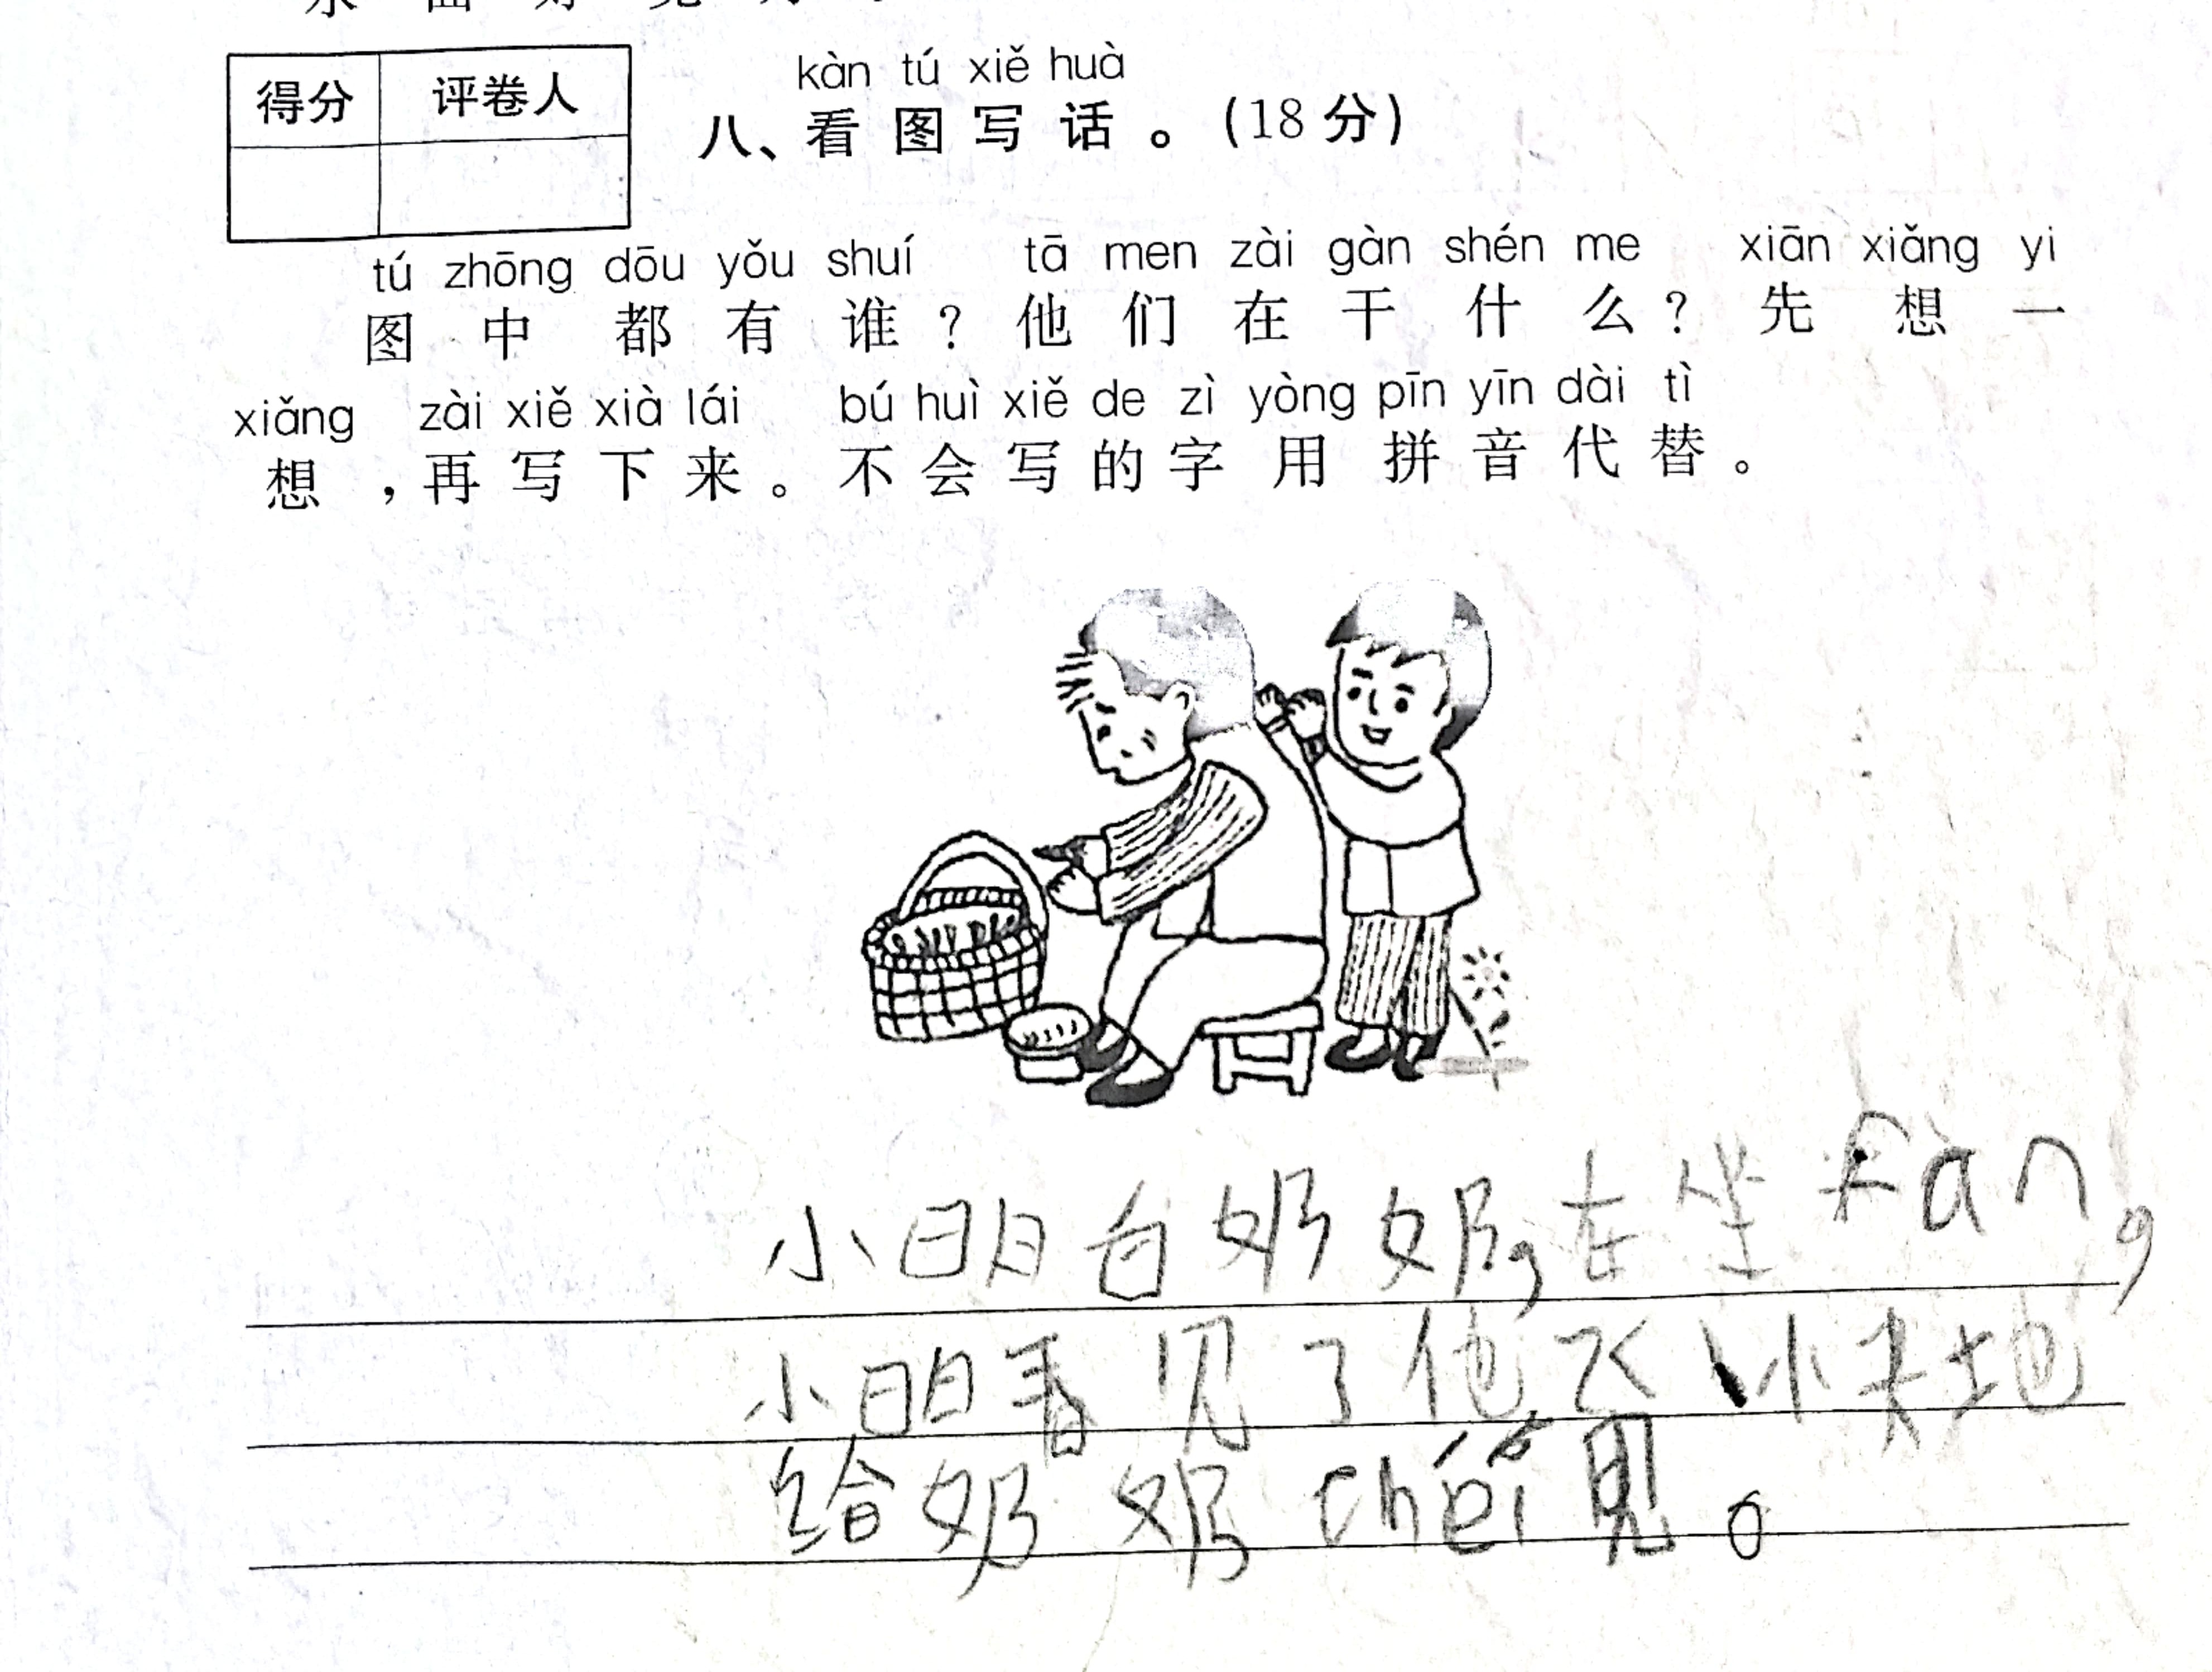 得分 评卷人
kàn tú xiě huà
八、看图写话。(18分)
tú zhōng dōu yǒu shuí tā men zài gàn shén me xiān xiǎng yi
图中都有谁?他们在干什么?先想一
xiǎng zài xiě xià lái bú huì xiě de zì yòng pīn yīn dài tì
想,再写下来。不会写的字用拼音代替。
小明白奶奶,在坐fàn,
小明看见了他飞小夫地
给奶奶chéi见。